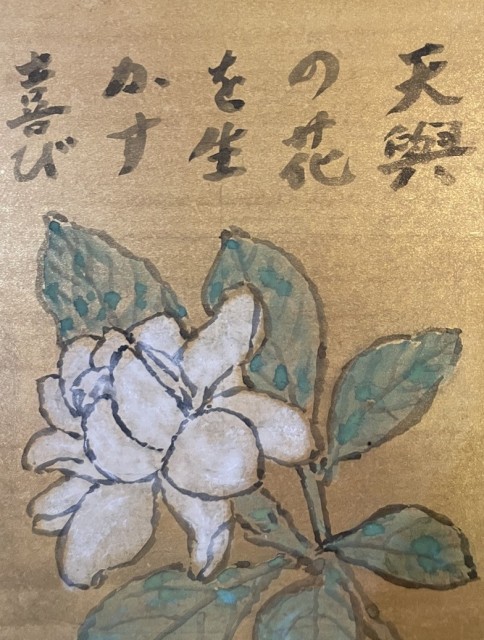 天與
の花
を生
かす
喜び